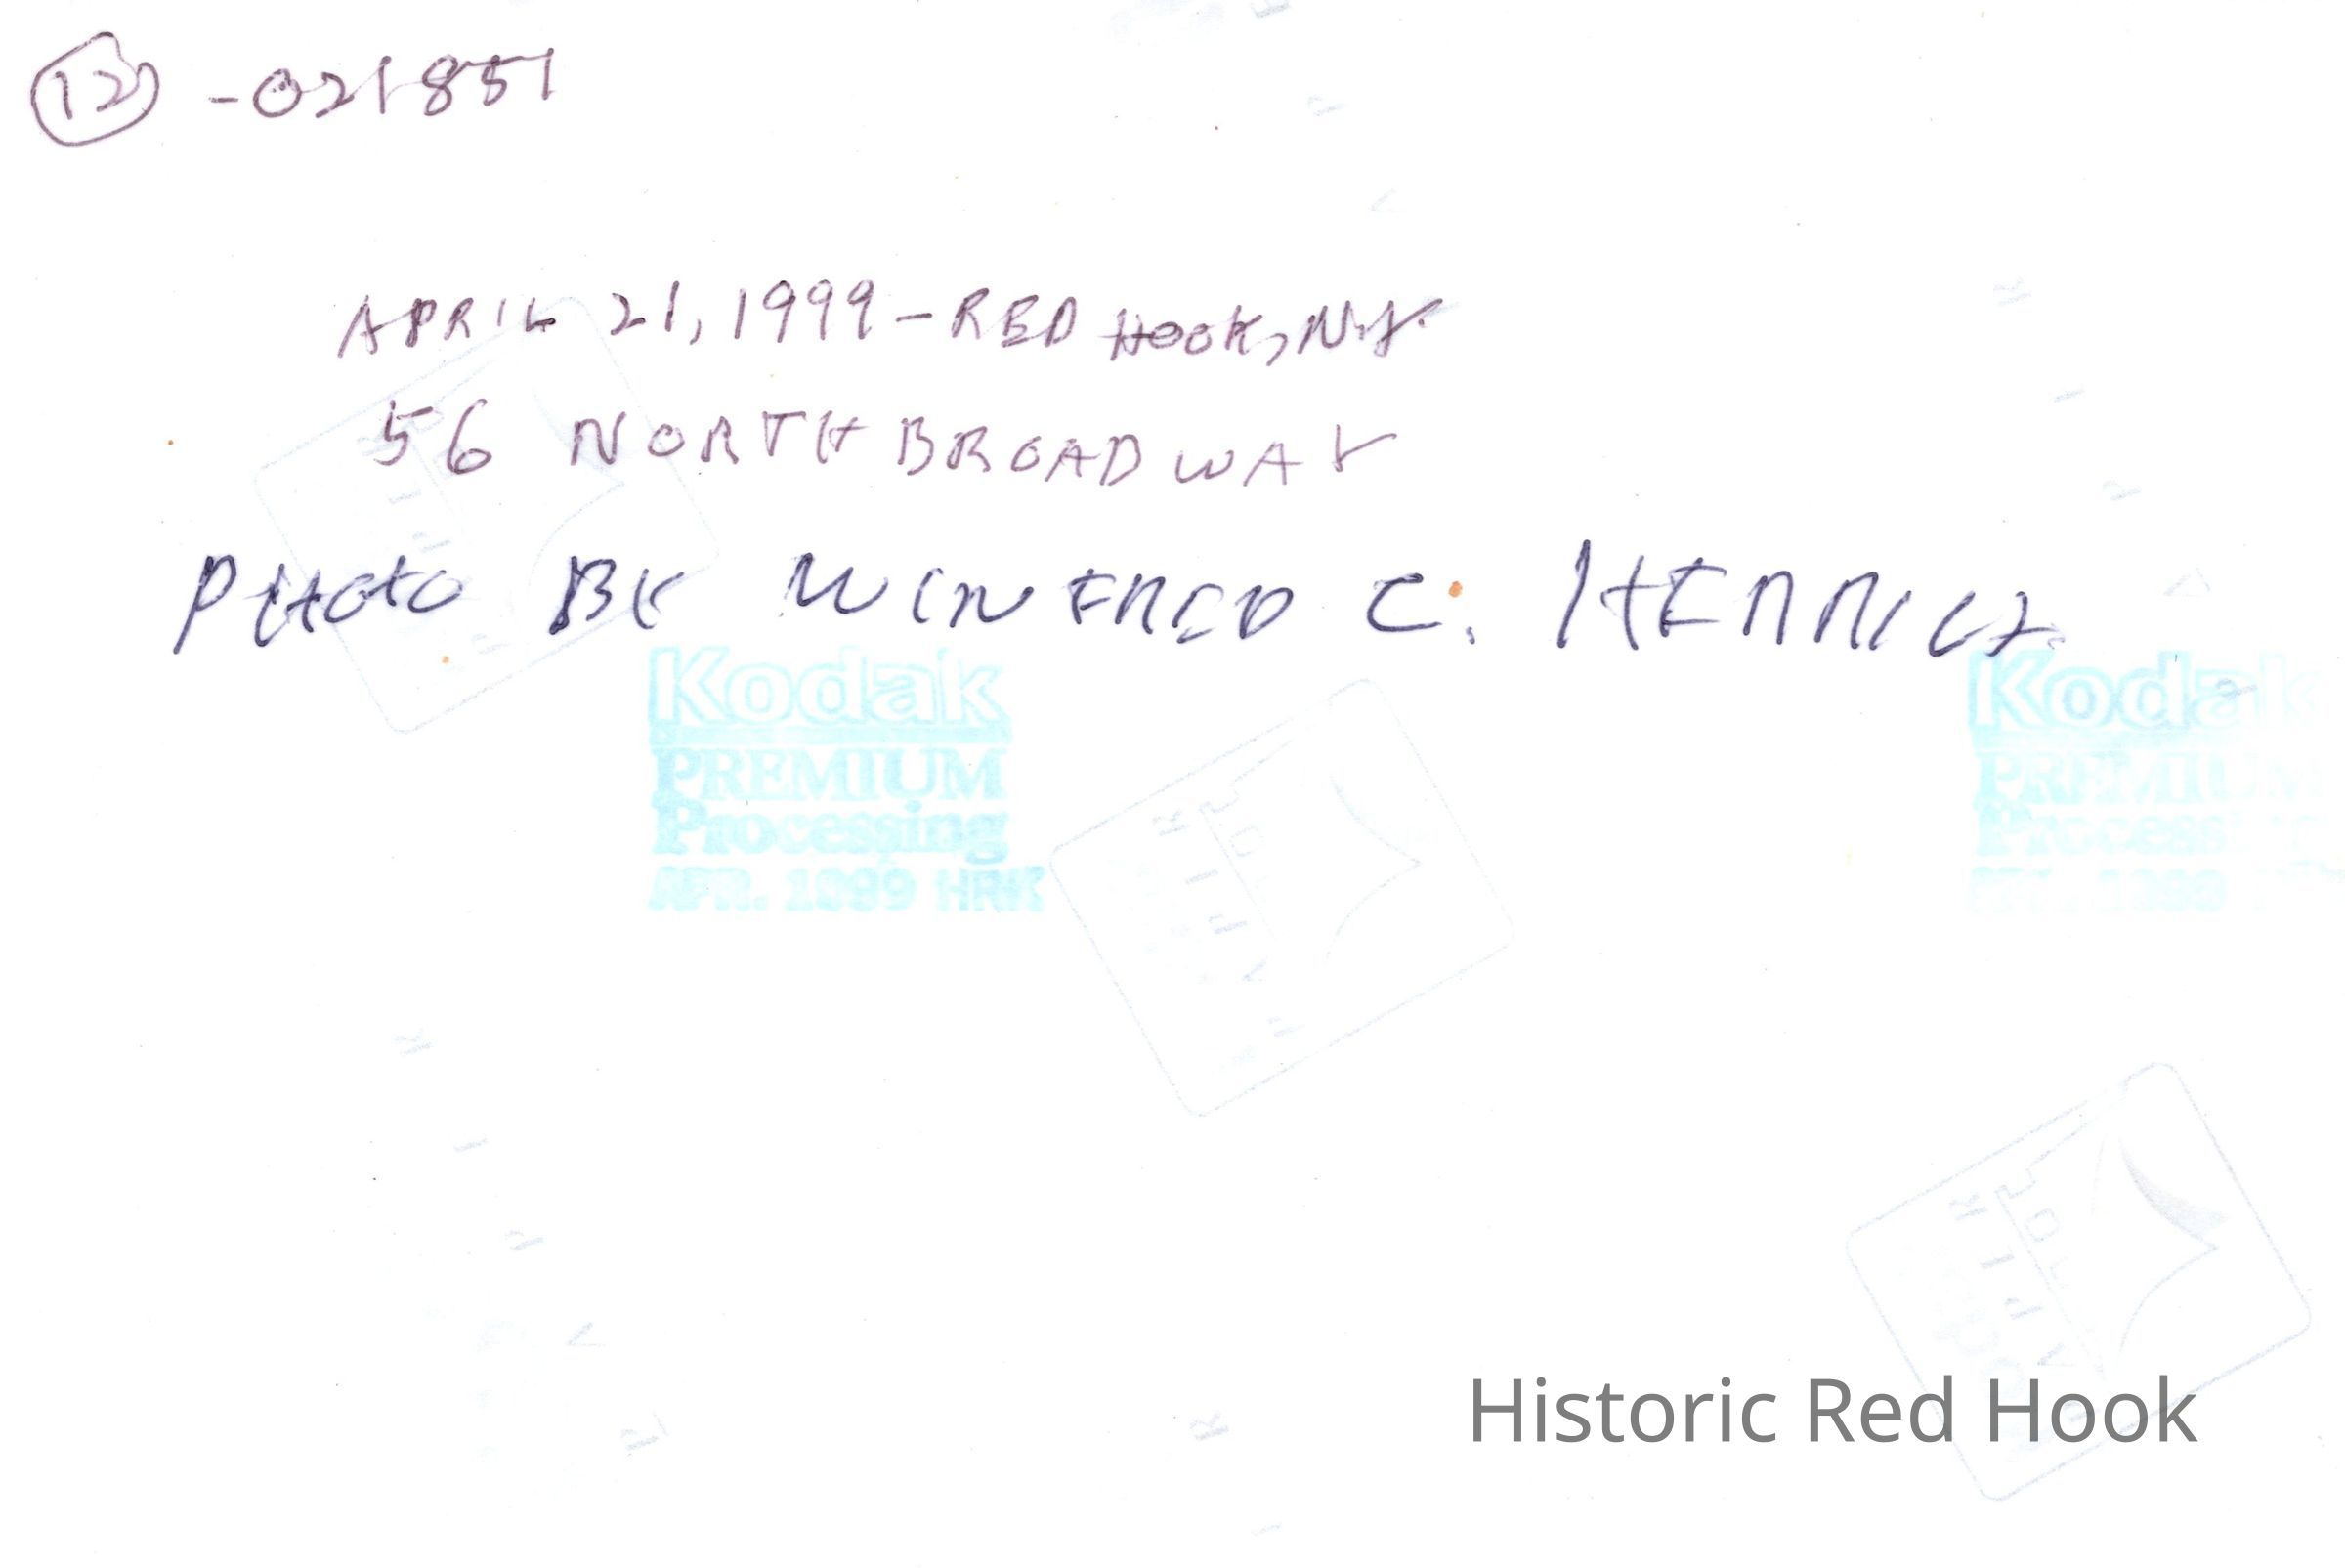 12 -021851
APRIL 21, 1999 - RED HOOK, NY.
56 NORTH BROADWAY
PHOTO BY WINFRED C. HERRICK
Kodak Kodak
PREMIUM PREMIUM
Processing Processing
APR. 1999 HRK 1999
Historic Red Hook